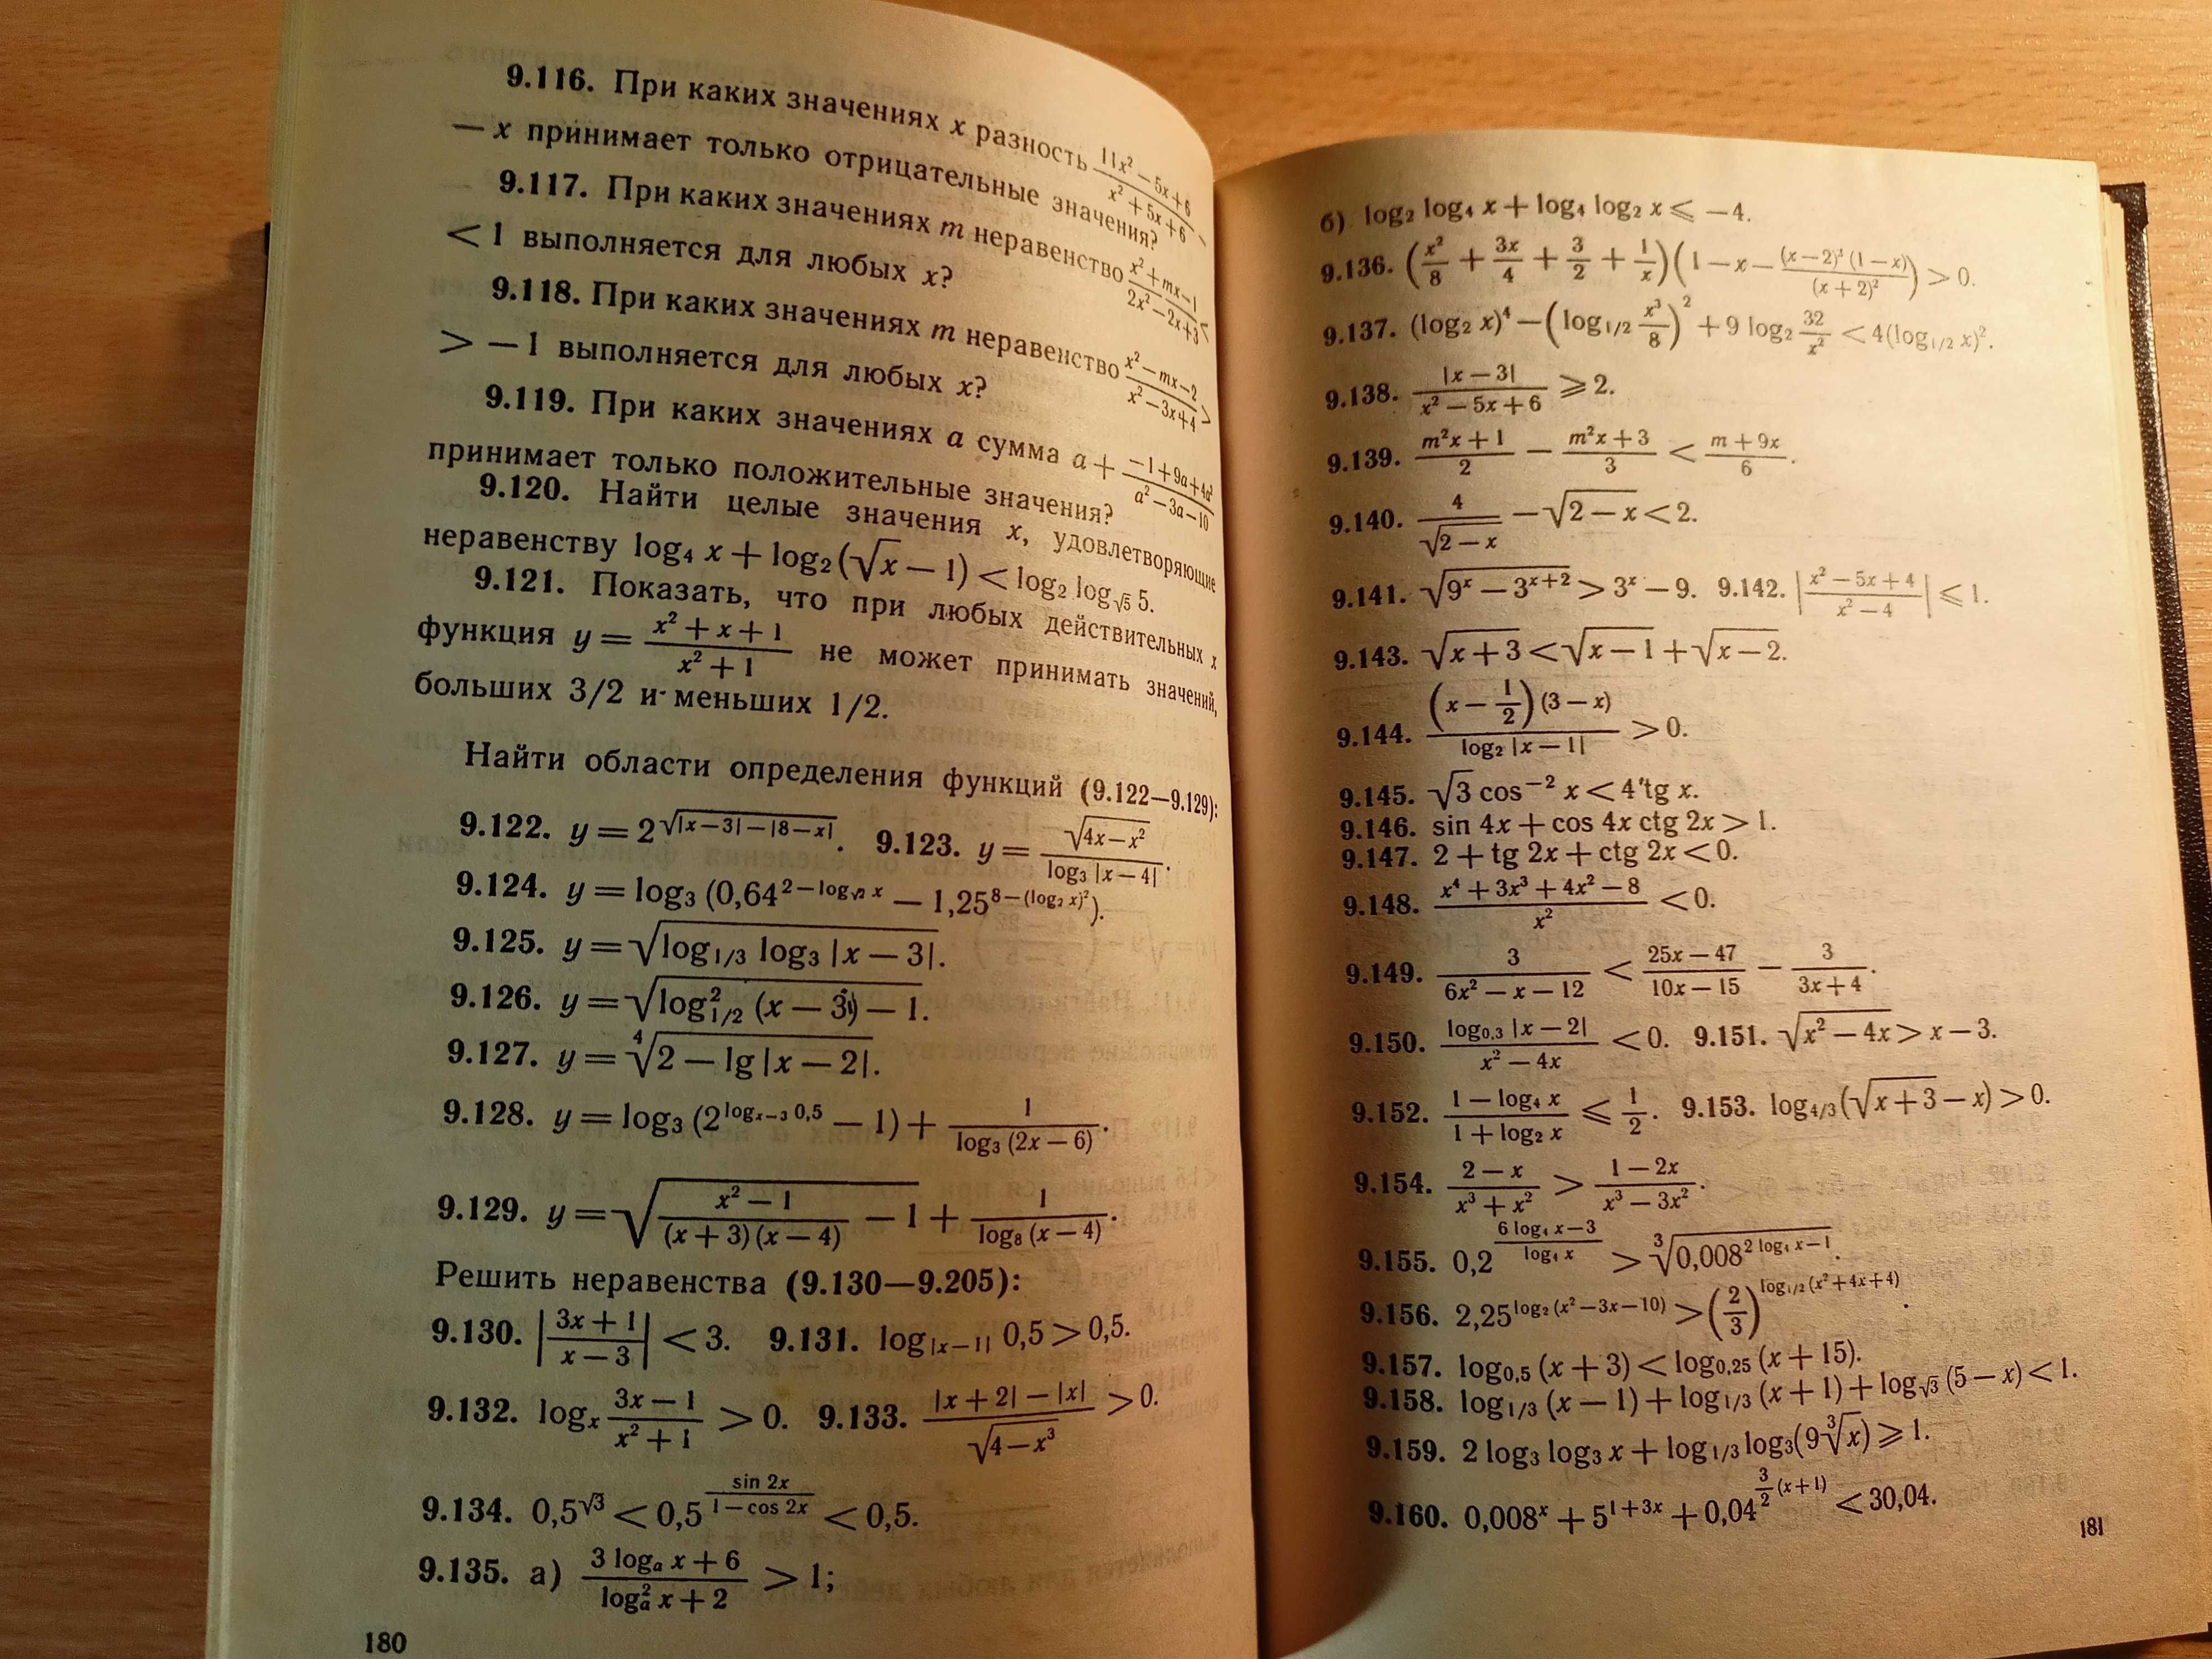 9.116. При каких значениях x разность (11x² − 5x + 6)/(x² + 5x + 6) −
− x принимает только отрицательные значения?
9.117. При каких значениях m неравенство (x² + mx − 1)/(2x² − 2x + 3) <
< 1 выполняется для любых x?
9.118. При каких значениях m неравенство (x² − mx − 2)/(x² − 3x + 4) >
> −1 выполняется для любых x?
9.119. При каких значениях a сумма a + (−1 + 9a + 4a²)/(a² − 3a − 10)
принимает только положительные значения?
9.120. Найти целые значения x, удовлетворяющие
неравенству log₄ x + log₂ (√x − 1) < log₂ log_√5 5.
9.121. Показать, что при любых действительных x
функция y = (x² + x + 1)/(x² + 1) не может принимать значений,
больших 3/2 и меньших 1/2.
Найти области определения функций (9.122—9.129):
9.122. y = 2^√(|x − 3| − |8 − x|). 9.123. y = √(4x − x²)/(log₃ |x − 4|).
9.124. y = log₃ (0,64^(2 − log_√2 x) − 1,25^(8 − (log₂ x)²)).
9.125. y = √(log_1/3 log₃ |x − 3|).
9.126. y = √(log²_1/2 (x − 3) − 1).
9.127. y = ⁴√(2 − lg |x − 2|).
9.128. y = log₃ (2^(log_x−3 0,5) − 1) + 1/(log₃ (2x − 6)).
9.129. y = √((x² − 1)/((x + 3)(x − 4)) − 1) + 1/(log₈ (x − 4)).
Решить неравенства (9.130—9.205):
9.130. |(3x + 1)/(x − 3)| < 3. 9.131. log_|x−1| 0,5 > 0,5.
9.132. log_x (3x − 1)/(x² + 1) > 0. 9.133. (|x + 2| − |x|)/√(4 − x³) > 0.
9.134. 0,5^√3 < 0,5^(sin 2x/(1 − cos 2x)) < 0,5.
9.135. а) (3 log_a x + 6)/(log²_a x + 2) > 1;
180
б) log₂ log₄ x + log₄ log₂ x ⩽ −4.
9.136. (x²/8 + 3x/4 + 3/2 + 1/x)(1 − x − (x − 2)² (1 − x)/(x + 2)²) > 0.
9.137. (log₂ x)⁴ − (log_1/2 x³/8)² + 9 log₂ 32/x² < 4(log_1/2 x)².
9.138. |x − 3|/(x² − 5x + 6) ⩾ 2.
9.139. (m²x + 1)/2 − (m²x + 3)/3 < (m + 9x)/6.
9.140. 4/√(2 − x) − √(2 − x) < 2.
9.141. √(9^x − 3^(x+2)) > 3^x − 9. 9.142. |(x² − 5x + 4)/(x² − 4)| ⩽ 1.
9.143. √(x + 3) < √(x − 1) + √(x − 2).
9.144. ((x − 1/2)(3 − x))/(log₂ |x − 1|) > 0.
9.145. √3 cos⁻² x < 4 tg x.
9.146. sin 4x + cos 4x ctg 2x > 1.
9.147. 2 + tg 2x + ctg 2x < 0.
9.148. (x⁴ + 3x³ + 4x² − 8)/x² < 0.
9.149. 3/(6x² − x − 12) < (25x − 47)/(10x − 15) − 3/(3x + 4).
9.150. (log₀,₃ |x − 2|)/(x² − 4x) < 0. 9.151. √(x² − 4x) > x − 3.
9.152. (1 − log₄ x)/(1 + log₂ x) ⩽ 1/2. 9.153. log_4/3 (√(x + 3) − x) > 0.
9.154. (2 − x)/(x³ + x²) > (1 − 2x)/(x³ − 3x²).
9.155. 0,2^((6 log₄ x − 3)/(log₄ x)) > ³√(0,008^(2 log₄ x − 1)).
9.156. 2,25^(log₂ (x² − 3x − 10)) > (2/3)^(log_1/2 (x² + 4x + 4)).
9.157. log₀,₅ (x + 3) < log₀,₂₅ (x + 15).
9.158. log_1/3 (x − 1) + log_1/3 (x + 1) + log_√3 (5 − x) < 1.
9.159. 2 log₃ log₃ x + log_1/3 log₃ (9 ³√x) ⩾ 1.
9.160. 0,008^x + 5^(1+3x) + 0,04^(3/2 (x+1)) < 30,04.
181